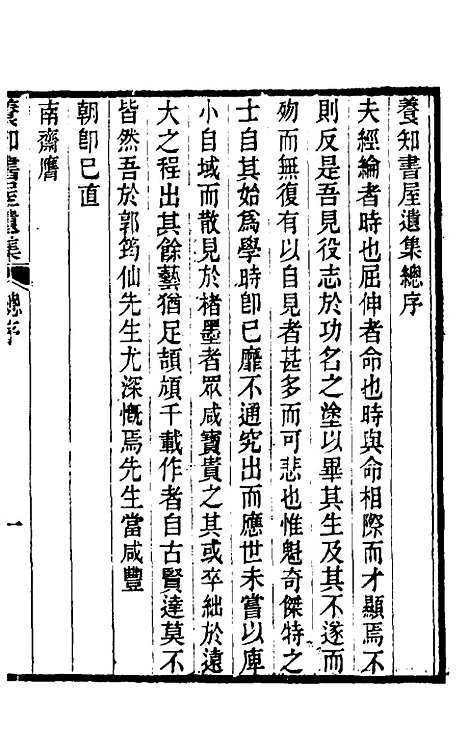 養知書屋遺集總序
夫經綸者時也屈伸者命也時與命相際而才顯焉不
則反是吾見役志於功名之塗以畢其生及其不遂而
歾而無復有以自見者甚多而可悲也惟魁奇傑特之
士自其始爲學時卽已靡不通究出而應世未嘗以庳
小自域而散見於楮墨者眾咸寶貴之其或卒絀於遠
大之程出其餘藝猶足頡頏千載作者自古賢達莫不
皆然吾於郭筠仙先生尤深慨焉先生當咸豐
朝卽已直
南齋膺
養知書屋遺集
總序
一